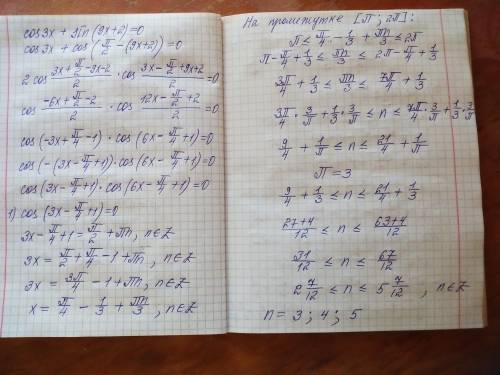 cos3x + sin(9x+2)=0
cos3x + cos(π/2 - (9x+2))=0
2 cos (3x+π/2-9x-2)/2 · cos (3x-π/2+9x+2)/2 =0
cos (-6x+π/2-2)/2 · cos (12x-π/2+2)/2 =0
cos(-3x+π/4-1) · cos(6x-π/4+1)=0
cos(-(3x-π/4+1)) · cos(6x-π/4+1)=0
cos(3x-π/4+1) · cos(6x-π/4+1)=0
1) cos(3x-π/4+1)=0
3x-π/4+1=π/2+πn, n∈Z
3x=π/2+π/4-1+πn, n∈Z
3x=3π/4-1+πn, n∈Z
x=π/4-1/3+πn/3, n∈Z
На промежутке [π; 2π]:
π≤π/4-1/3+πn/3≤2π
π-π/4+1/3≤πn/3≤2π-π/4+1/3
3π/4+1/3≤πn/3≤7π/4+1/3
3π/4·3/π+1/3·3/π≤n≤7π/4·3/π+1/3·3/π
9/4+1/π≤n≤21/4+1/π
π=3
9/4+1/3≤n≤21/4+1/3
(27+4)/12≤n≤(63+4)/12
31/12≤n≤67/12
2 7/12≤n≤5 7/12, n∈Z
n=3; 4; 5